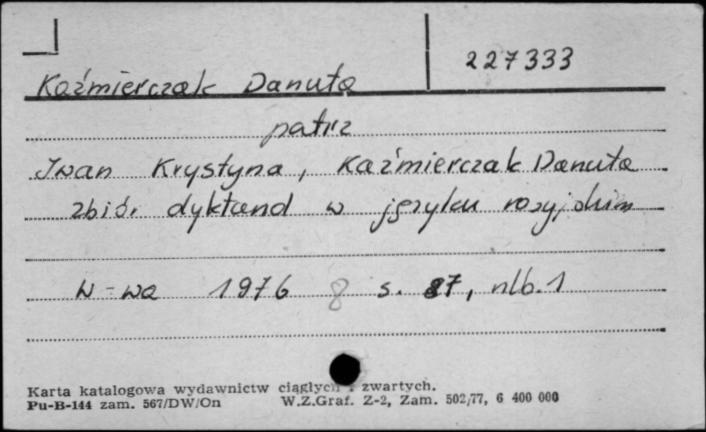 227333
Kaźmierczak Danuta
patrz
Iwan Krystyna, Kaźmierczak Danuta
zbiór dyktand w języku rosyjskim
W-wa 1976 8 s. 87, nlb. 1
Karta katalogowa wydawnictw ciągłych i zwartych.
Pu-B-144 zam. 567/DW/On W.Z.Graf. Z-2, Zam. 502/77, 6 400 000